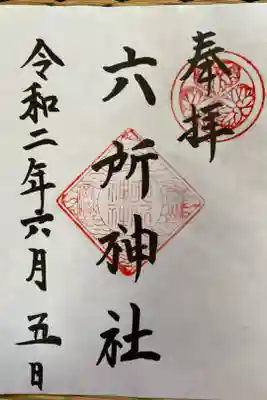 奉拝
六所神社
令和二年六月五日